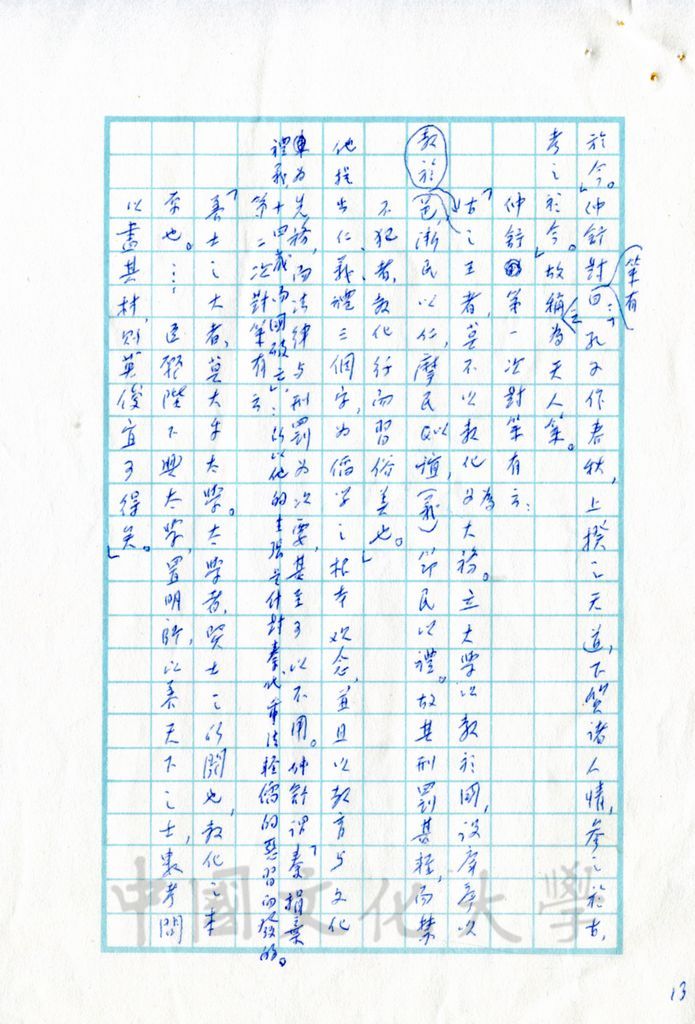 於今。」仲舒對曰…孔子作春秋,上揆之天道,下質諸人情,參之於古,
策有
考之於今。」故稱為天人策。
仲舒第一次對策有云:
「古之王者,莫不以教化為大務。立大學以教於國,設庠序以
教於邑,漸民以仁,摩民以誼,(義)節民以禮。故其刑罰甚輕,而禁
不犯者,教化行而習俗美也。」
他提出仁、義、禮三個字,為儒學之根本观念,並且以教育与文化
為先務,而法律与刑罰為次要,甚至可以不用。仲舒謂「秦捐棄
禮義,十四歲而國破亡」:所以他的主張是針對秦代重法輕儒的惡習而發的。
第二次對策有云
「養士之大者,莫大乎太學。太學者,賢士之所關也,教化之本
原也。…臣願陛下興太學,置明師,以養天下之士,數考問
以盡其材,則英俊宜可得矣。」
中國文化大學
13